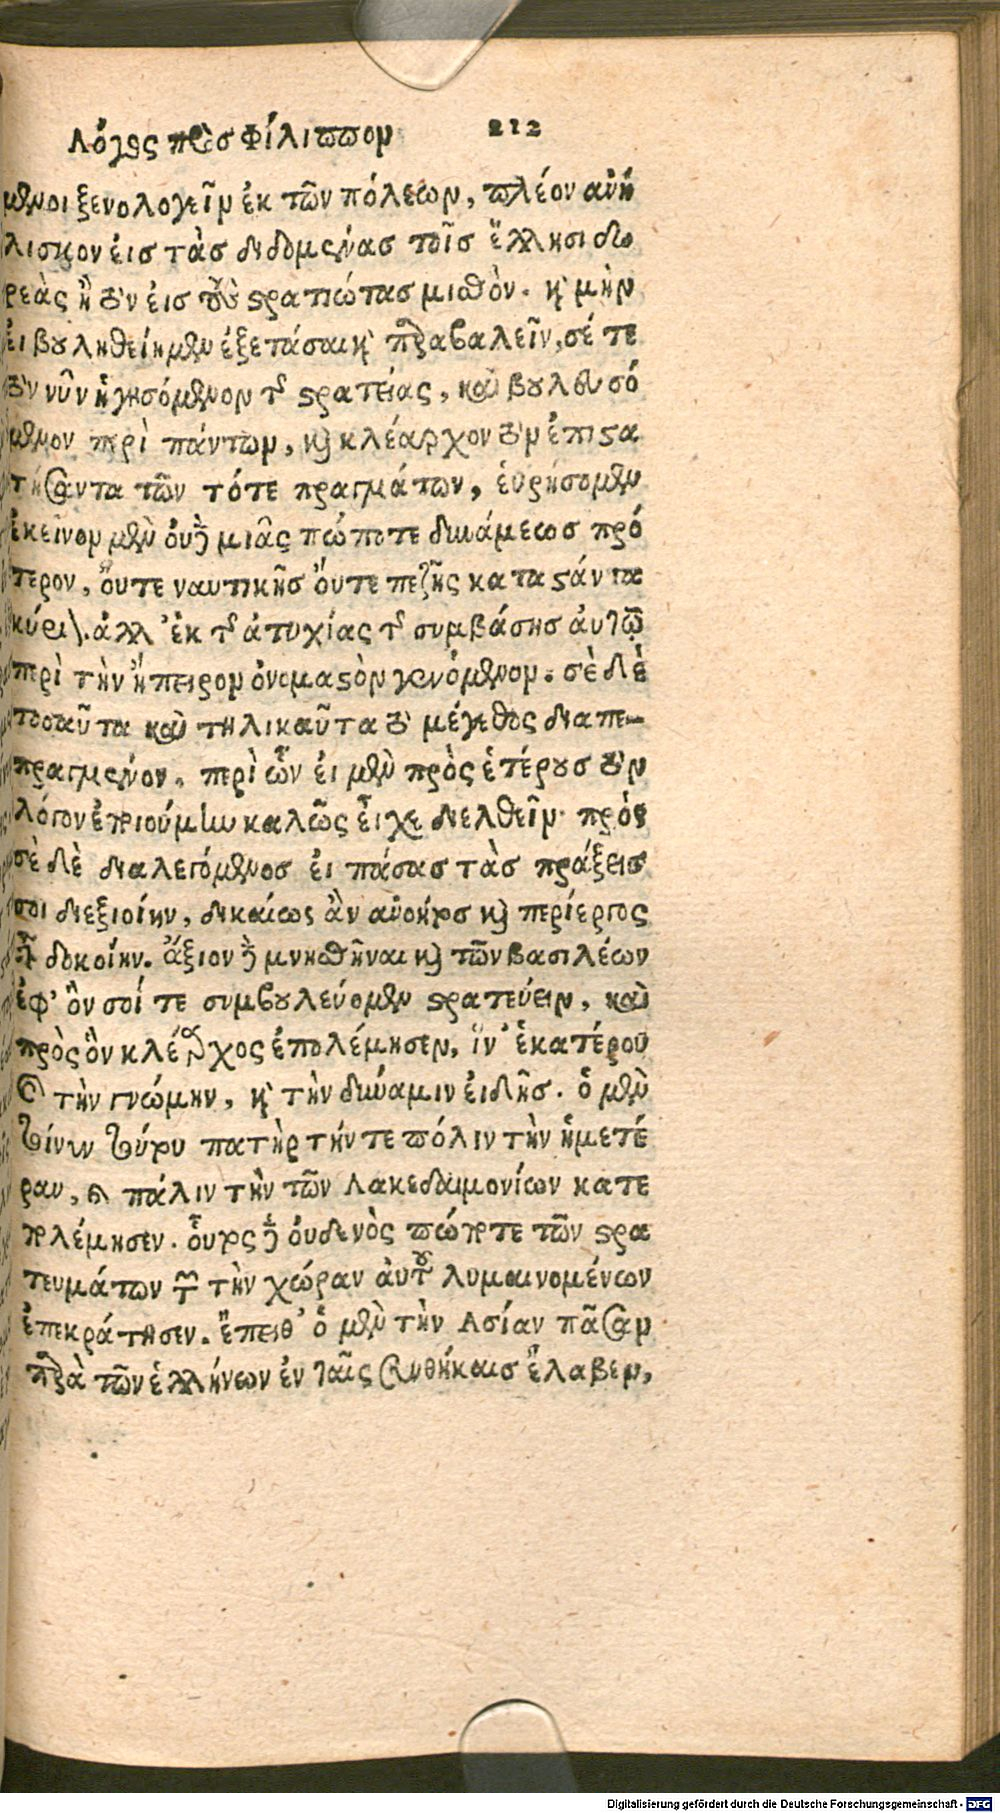 Λόγος πρὸς Φίλιππον 212
μενοι ξενολογεῖν ἐκ τῶν πόλεων, πλέον ἀνή
λισκον εἰς τὰς διδομένας τοῖς ἕλλησι δω
ρεὰς ἢ τὸν εἰς τοὺς στρατιώτας μισθὸν. καὶ μὴν
εἰ βουληθείημεν ἐξετάσαι καὶ παραβαλεῖν, σέ τε
τὸν νῦν ἡγησόμενον τῆς στρατείας, καὶ βουλευσό
μενον περὶ πάντων, καὶ κλέαρχον τὸν ἐπιστα
τήσαντα τῶν τότε πραγμάτων, εὑρήσομεν
ἐκεῖνον μὲν οὐδὲ μιᾶς πώποτε δυνάμεως πρό
τερον, οὔτε ναυτικῆς οὔτε πεζῆς καταστάντα
κύριον. ἀλλ' ἐκ τῆς ἀτυχίας τῆς συμβάσης αὐτῷ
περὶ τὴν ἤπειρον ὀνομαστὸν γενόμενον. σὲ δὲ
τοσαῦτα καὶ τηλικαῦτα τὸ μέγεθος διαπε-
πραγμένον. περὶ ὧν εἰ μὲν πρὸς ἑτέρους τὸν
λόγον ἐποιούμην καλῶς εἶχε διελθεῖν. πρὸς
σὲ δὲ διαλεγόμενος εἰ πάσας τὰς πράξεις
σοι διεξιοίην, δικαίως ἂν ἀνόητος καὶ περίεργος
εἶναι δοκοίην. ἄξιον δὲ μνησθῆναι καὶ τῶν βασιλέων
ἐφ' ὃν σοί τε συμβουλεύομεν στρατεύειν, καὶ
πρὸς ὃν κλέαρχος ἐπολέμησεν, ἵν' ἑκατέρου
καὶ τὴν γνώμην, καὶ τὴν δύναμιν εἰδῇς. ὁ μὲν
τοίνυν τούτου πατὴρ τήν τε πόλιν τὴν ἡμετέ
ραν, καὶ πάλιν τὴν τῶν Λακεδαιμονίων κατε
πολέμησεν. οὗτος δὲ οὐδενὸς πώποτε τῶν στρα
τευμάτων τῶν τὴν χώραν αὐτοῦ λυμαινομένων
ἐπεκράτησεν. ἔπειθ' ὁ μὲν τὴν Ασίαν πᾶσαν
παρὰ τῶν ἑλλήνων ἐν ταῖς συνθήκαις ἔλαβεν,
Digitalisierung gefördert durch die Deutsche Forschungsgemeinschaft - DFG